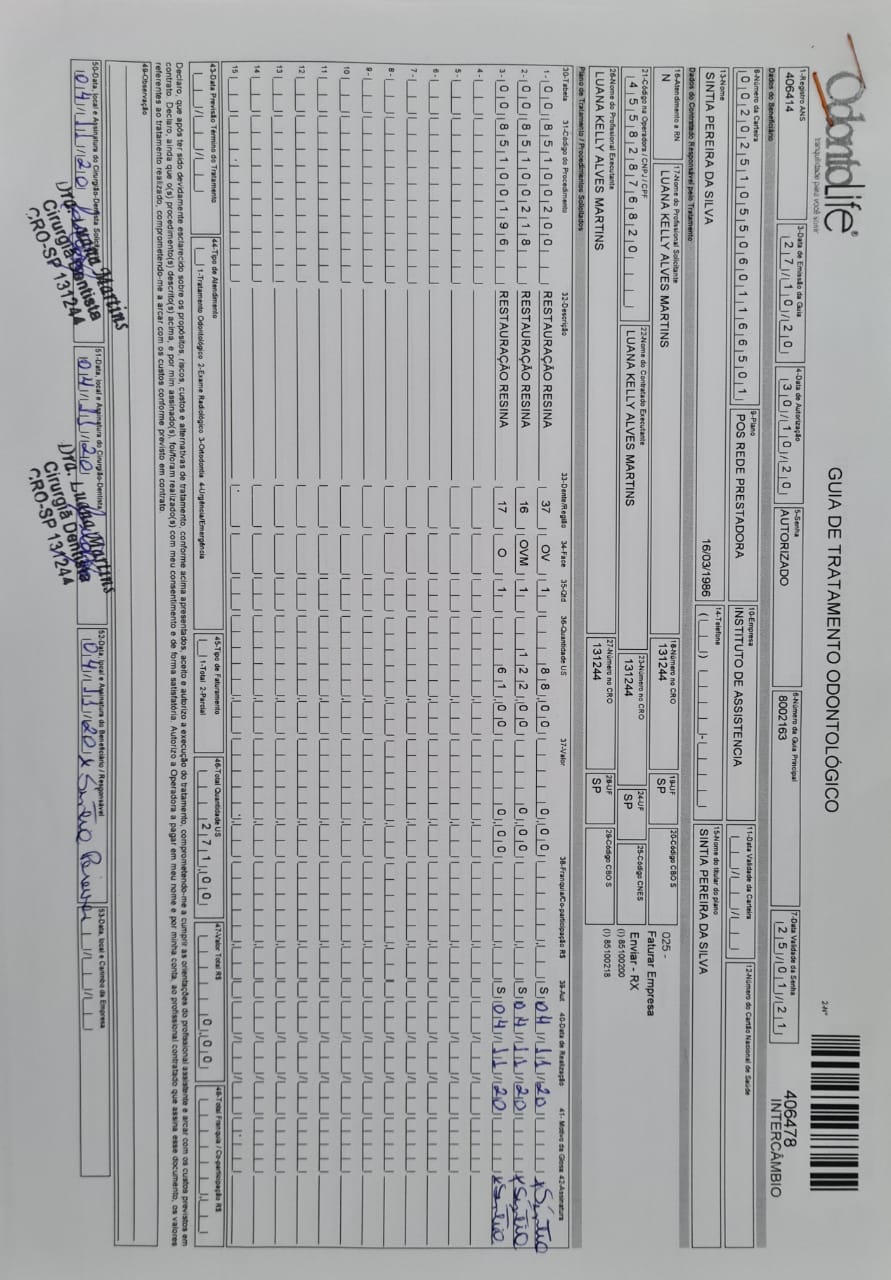 OdontoLife®
tranquilidade para você sorrir
GUIA DE TRATAMENTO ODONTOLÓGICO
2-Nº
406478
INTERCÂMBIO
1-Registro ANS
406414
3-Data de Emissão da Guia
27/10/20
4-Data de Autorização
30/10/20
5-Senha
AUTORIZADO
6-Número da Guia Principal
8002163
7-Data Validade da Senha
25/01/21
Dados do Beneficiário
8-Número da Carteira
00202510550601166501
9-Plano
POS REDE PRESTADORA
10-Empresa
INSTITUTO DE ASSISTENCIA
11-Data Validade da Carteira
12-Número do Cartão Nacional de Saúde
13-Nome
SINTIA PEREIRA DA SILVA
16/03/1986
14-Telefone
15-Nome do titular do plano
SINTIA PEREIRA DA SILVA
Dados do Contratado Responsável pelo Tratamento
16-Atendimento a RN
N
17-Nome do Profissional Solicitante
LUANA KELLY ALVES MARTINS
18-Número no CRO
131244
19-UF
SP
20-Código CBO S
025 -
Faturar Empresa
Enviar - RX
(I) 85100200
(I) 85100218
21-Código na Operadora / CNPJ / CPF
45582876820
22-Nome do Contratado Executante
LUANA KELLY ALVES MARTINS
23-Número no CRO
131244
24-UF
SP
25-Código CNES
26-Nome do Profissional Executante
LUANA KELLY ALVES MARTINS
27-Número no CRO
131244
28-UF
SP
29-Código CBO S
Plano de Tratamento / Procedimentos Solicitados
30-Tabela 31-Código do Procedimento 32-Descrição 33-Dente/Região 34-Face 35-Qtd 36-Quantidade US 37-Valor 38-Franquia/Co-participação R$ 39-Aut. 40-Data de Realização 41- Motivo da Glosa 42-Assinatura
1- 00 85100200 RESTAURAÇÃO RESINA 37 OV 1 88,00 0,00 S 04/11/20 x Síntia
2- 00 85100218 RESTAURAÇÃO RESINA 16 OVM 1 122,00 0,00 S 04/11/20 x Síntia
3- 00 85100196 RESTAURAÇÃO RESINA 17 O 1 61,00 0,00 S 04/11/20 x Síntia
4-
5-
6-
7-
8-
9-
10
11
12
13
14
15
43-Data Previsão Término do Tratamento
44-Tipo de Atendimento
1-Tratamento Odontológico 2-Exame Radiológico 3-Ortodontia 4-Urgência/Emergência
45-Tipo de Faturamento
1-Total 2-Parcial
46-Total Quantidade US
271,00
47-Valor Total R$
0,00
48-Total Franquia / Co-participação R$
Declaro, que após ter sido devidamente esclarecido sobre os propósitos, riscos, custos e alternativas de tratamento, conforme acima apresentados, aceito e autorizo a execução do tratamento, comprometendo-me a cumprir as orientações do profissional assistente e arcar com os custos previstos em
contrato. Declaro, ainda que o(s) procedimento(s) descrito(s) acima, e por mim assinado(s), foi/foram realizado(s) com meu consentimento e de forma satisfatória. Autorizo a Operadora a pagar em meu nome e por minha conta, ao profissional contratado que assina esse documento, os valores
referentes ao tratamento realizado, comprometendo-me a arcar com os custos conforme previsto em contrato.
49-Observação
50-Data, local e Assinatura do Cirurgião-Dentista Solicitante
04/11/20
Dra. Luana Martins
Cirurgiã Dentista
CRO-SP 131244
51-Data, local e Assinatura do Cirurgião-Dentista
04/11/20
Dra. Luana Martins
Cirurgiã Dentista
CRO-SP 131244
52-Data, local e Assinatura do Beneficiário / Responsável
04/11/20 x Síntia Pereira
53-Data, local e Carimbo da Empresa